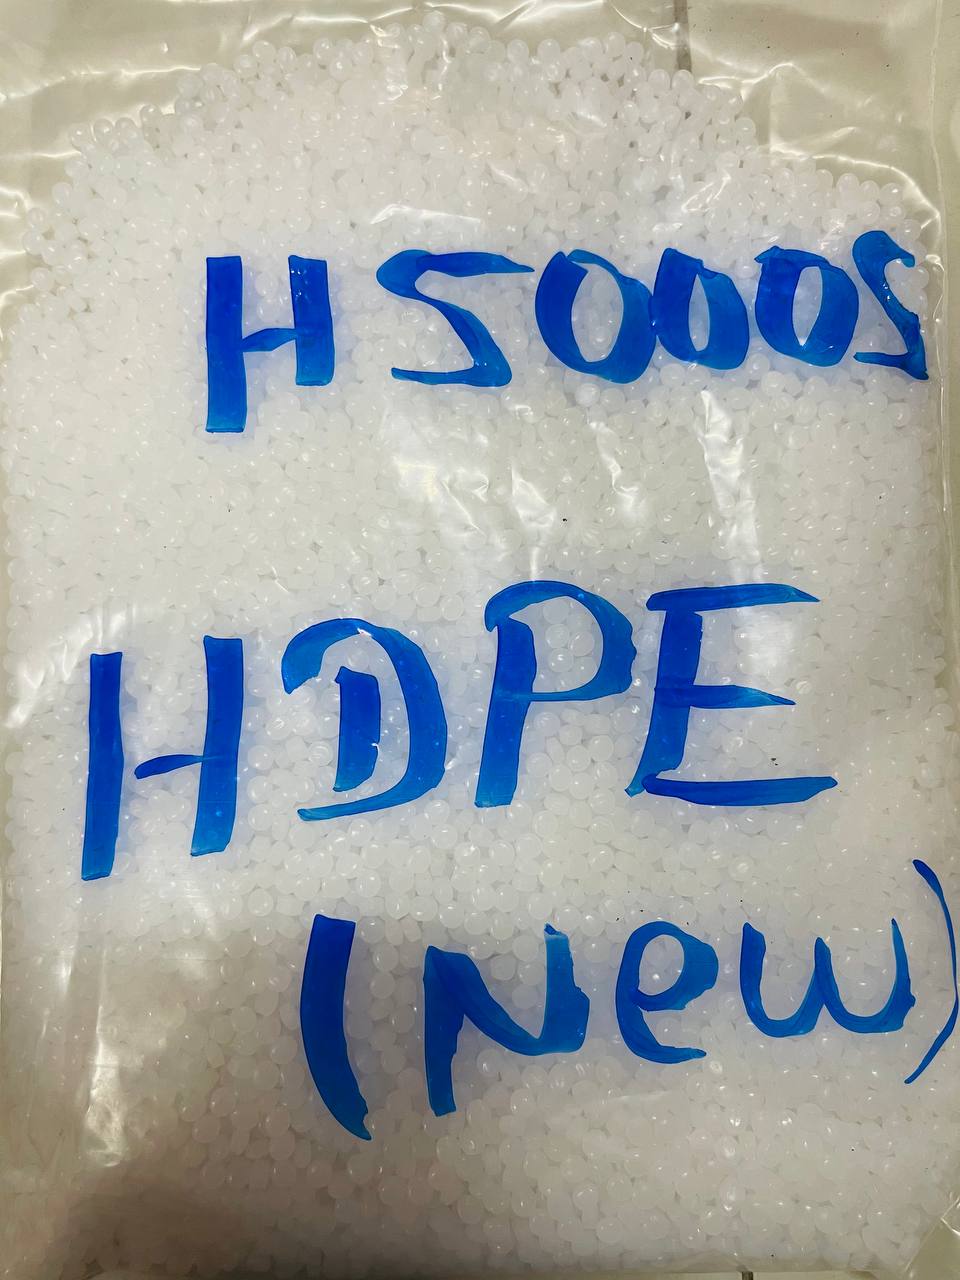 H5000S
HDPE
(New)